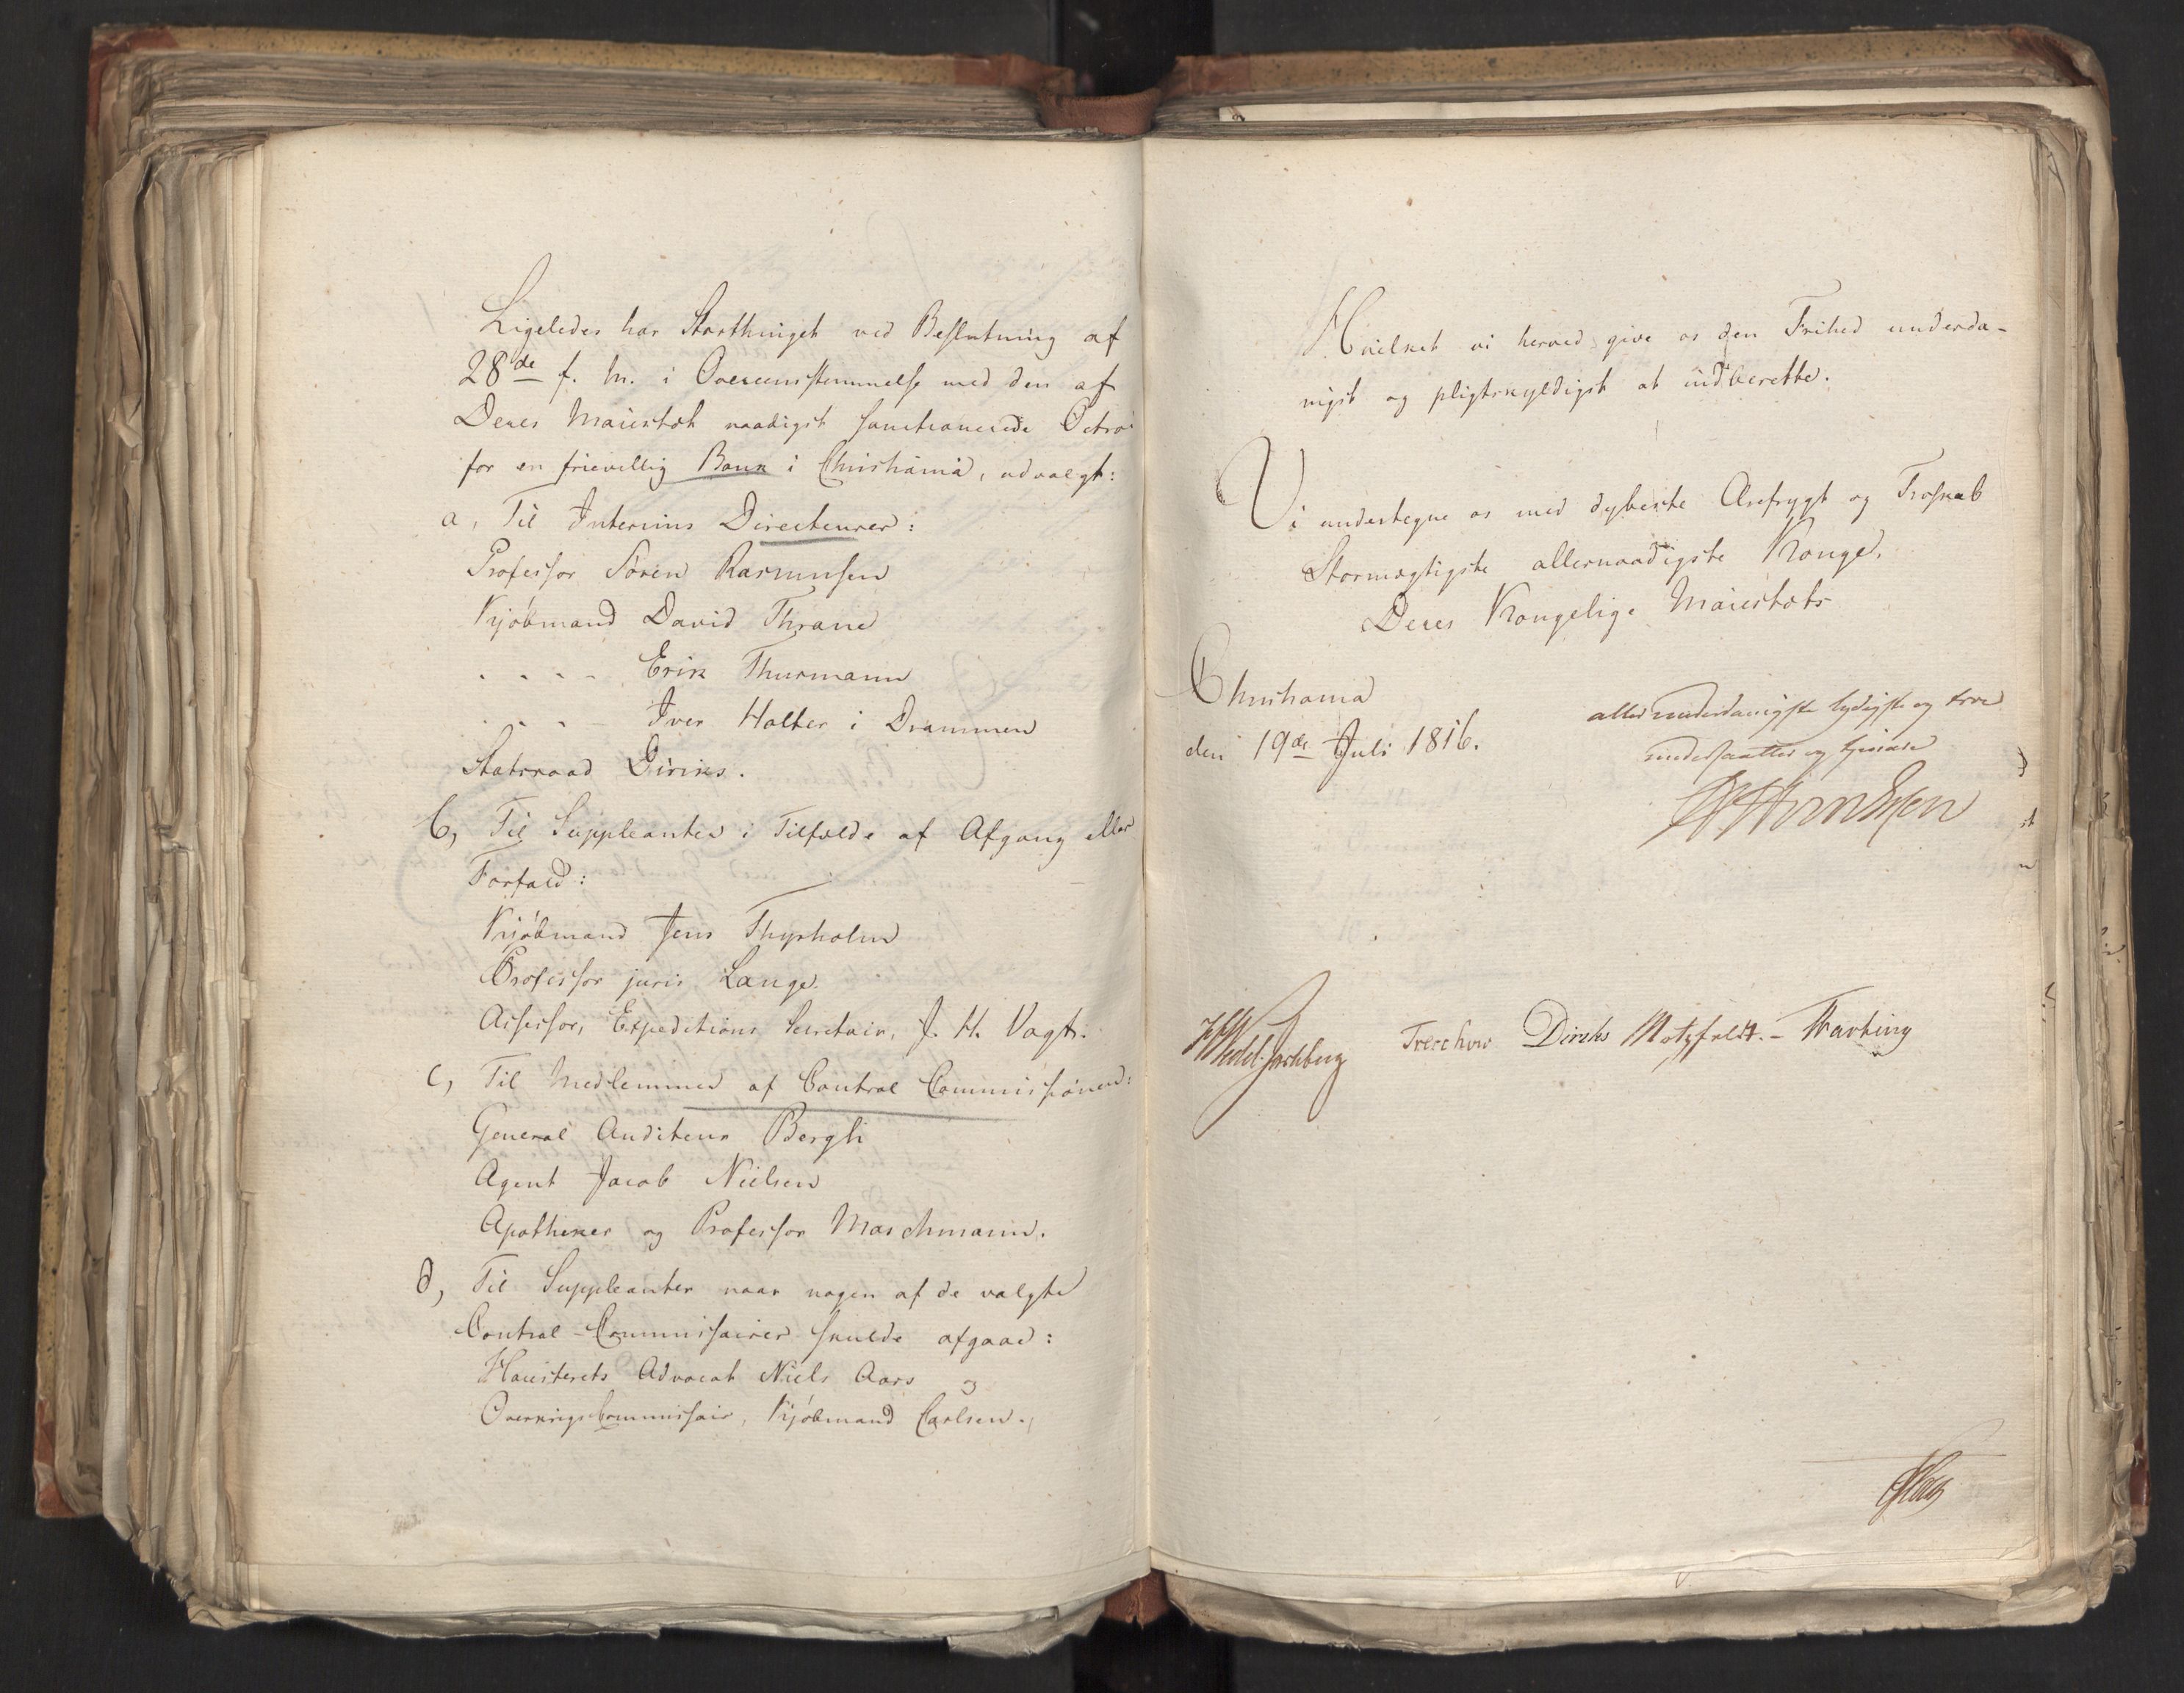 Ligeledes har Storthinget ved Beslutning af
28de f. M. i Overeensstemmelse med den af
Deres Maiestæt naadigst sanctionerede Octroi
for en frievillig Bank i Christiania, udvalgt:
a, Til Interims Directeurer:
Professor Sören Rasmussen
Kjöbmand David Thrane
. . - - Erik Thurmann
. . - - Iver Holter i Drammen
Statsraad Diriks.
b, Til Suppleanter i Tilfælde af Afgang eller
Forfald:
Kjöbmand Jens Thysholm
Professor juris Lange.
Assessor, Expeditions Secretair, J. H. Vogt.
c, Til Medlemmer af Control Commissionen:
General Auditeur Bergh
Agent Jacob Nielsen
Apotheker og Professor Maschmann.
d, Til Suppleanter naar nogen af de valgte
Control-Commissairer skulde afgaae:
Höiesterets Advocat Niels Aars og
Overkrigscommissair, Kjöbmand Carlsen.
Hvilket vi herved give os den Frihed underda-
nigst og pligtskyldigst at indberette.
Vi undertegne os med dybeste Ærefrygt og Troskab
Stormægtigste allernaadigste Konge,
Deres Kongelige Maiestæts
Christiania
den 19de Juli 1816.
allerunderdanigste lydigste og troe
undersaatter og tjenere
Wedel Jarlsberg Treschow Diriks Motzfeldt.